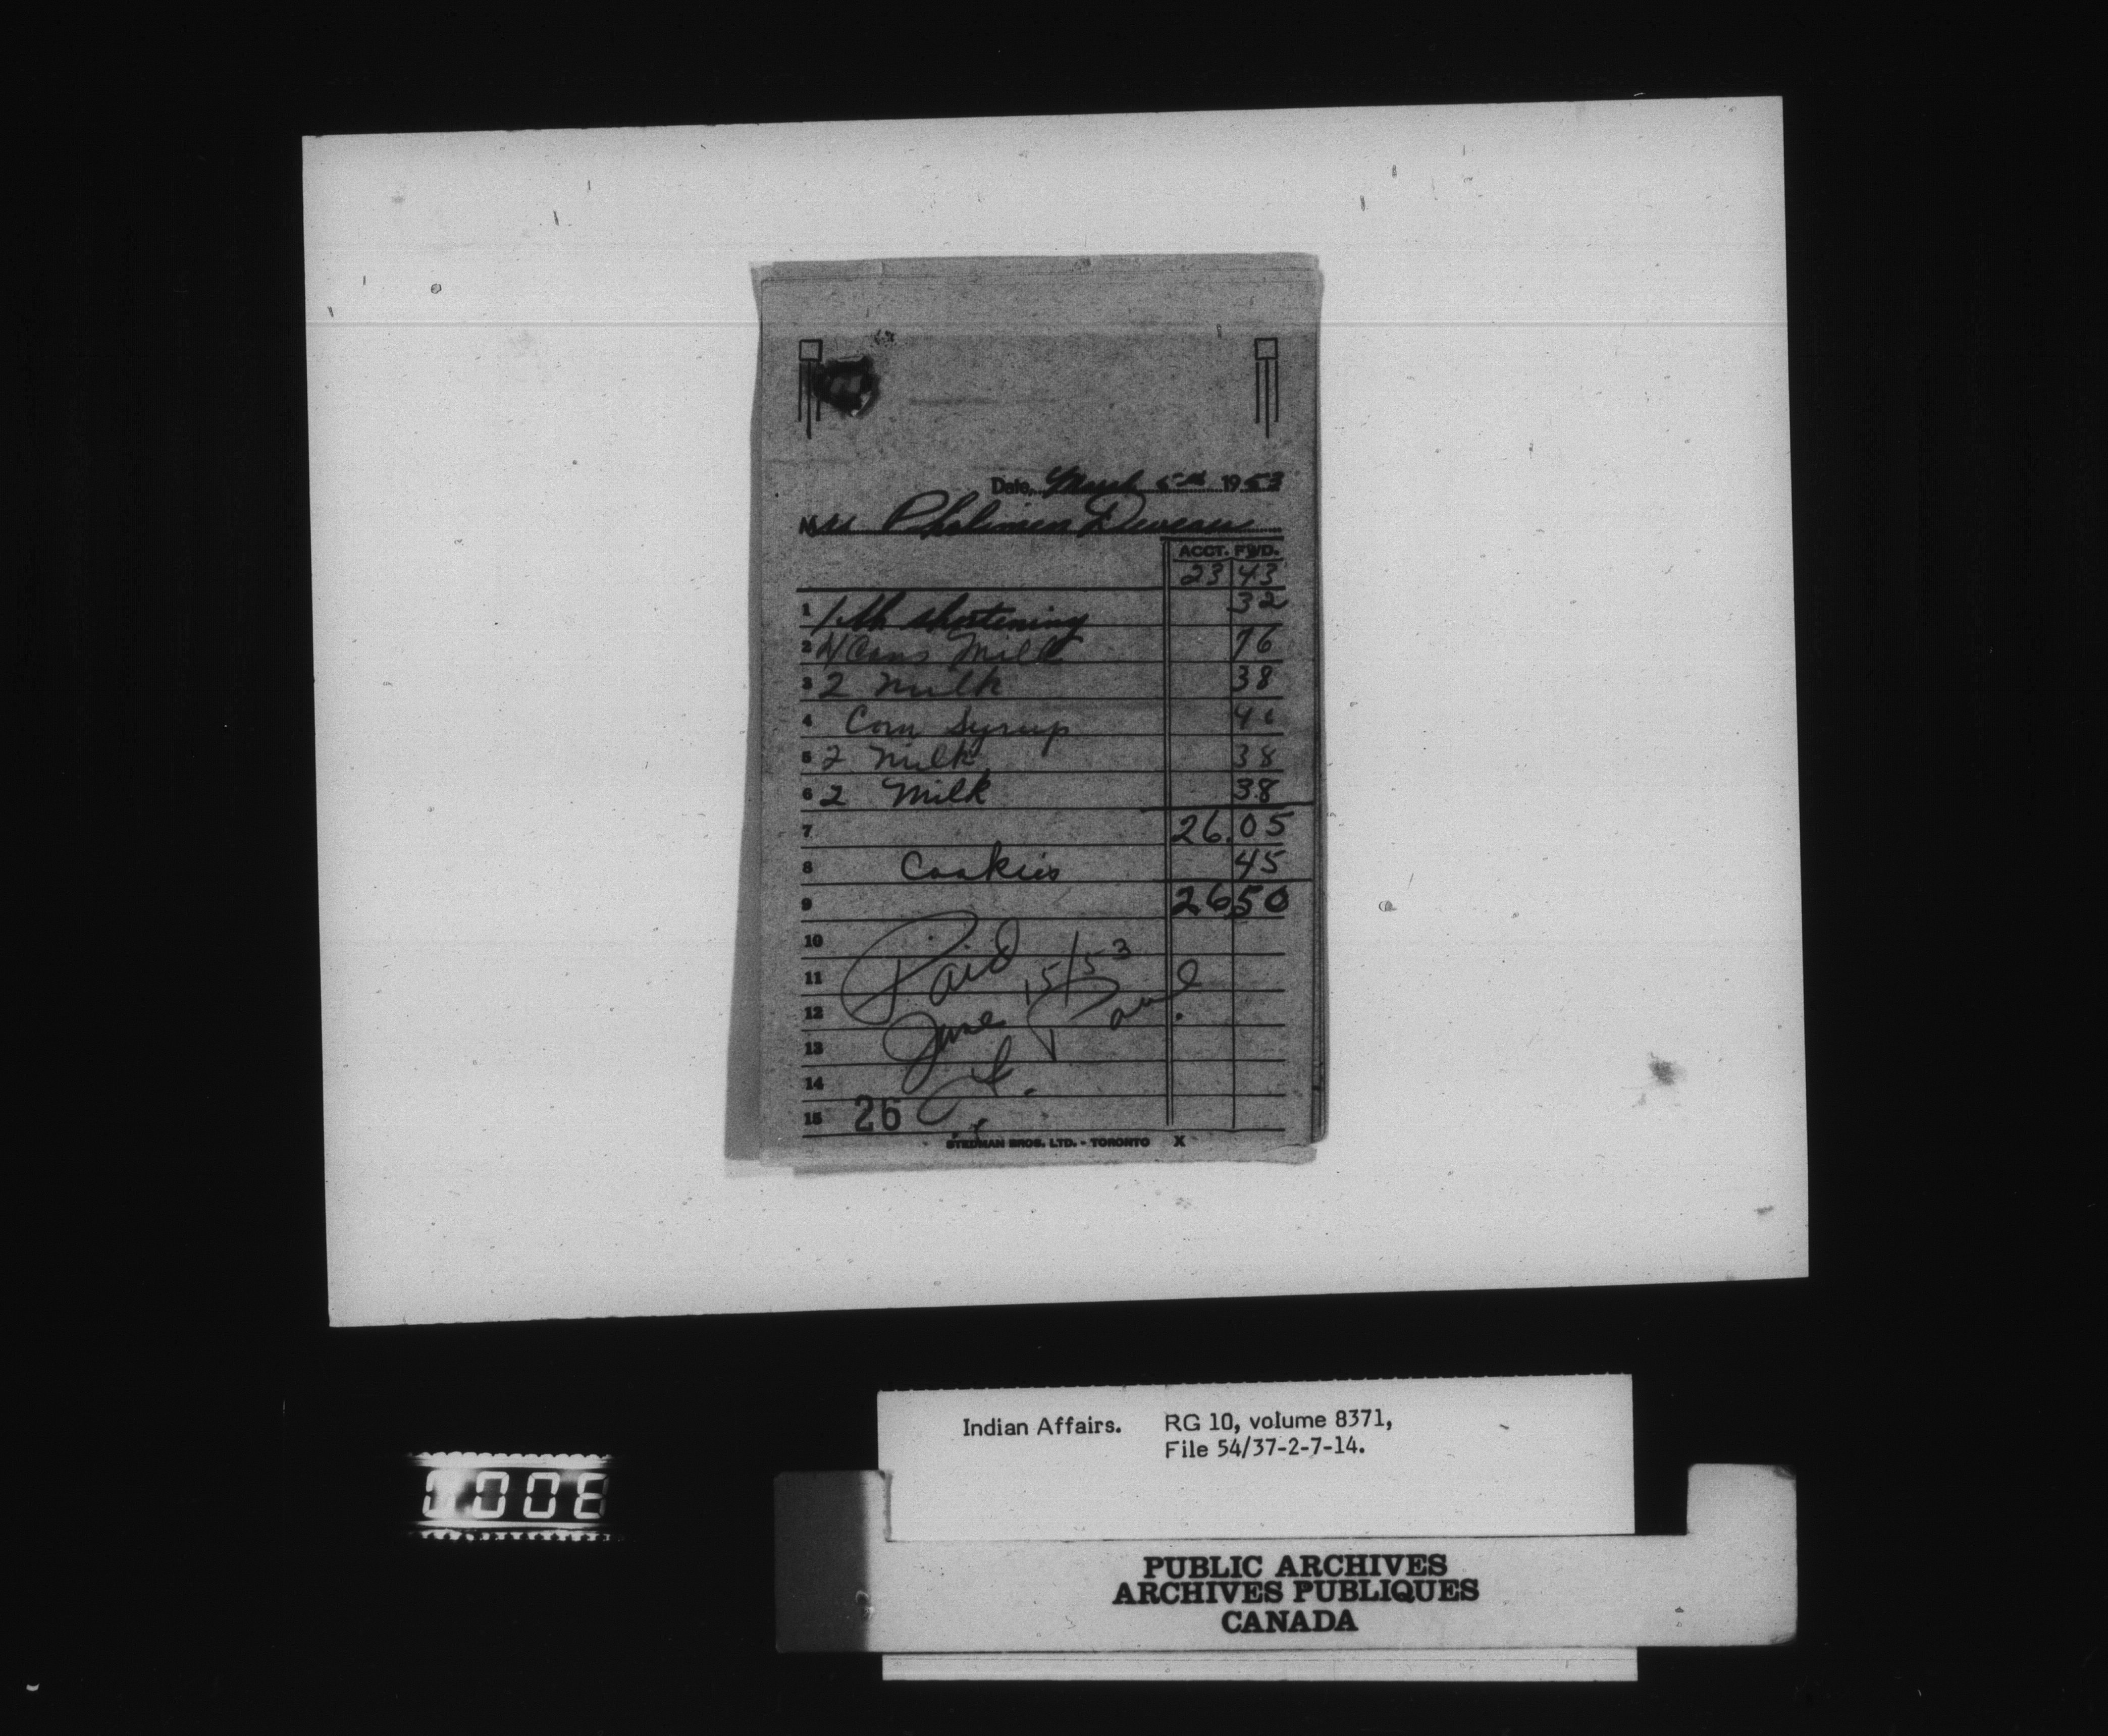 Date March 5th 1953
Mrs Philimen Deveau
ACCT. FWD.
23 43
1 1 lb shortening 32
2 4 Cans Milk 76
3 2 Milk 38
4 Corn Syrup 40
5 2 Milk 38
6 2 Milk 38
7 26.05
8 Cookies 45
9 26 50
10 Paid
11 15/53
12 June
13
14
15 26
STEDMAN BROS. LTD. - TORONTO X
Indian Affairs. RG 10, volume 8371,
File 54/37-2-7-14.
PUBLIC ARCHIVES
ARCHIVES PUBLIQUES
CANADA